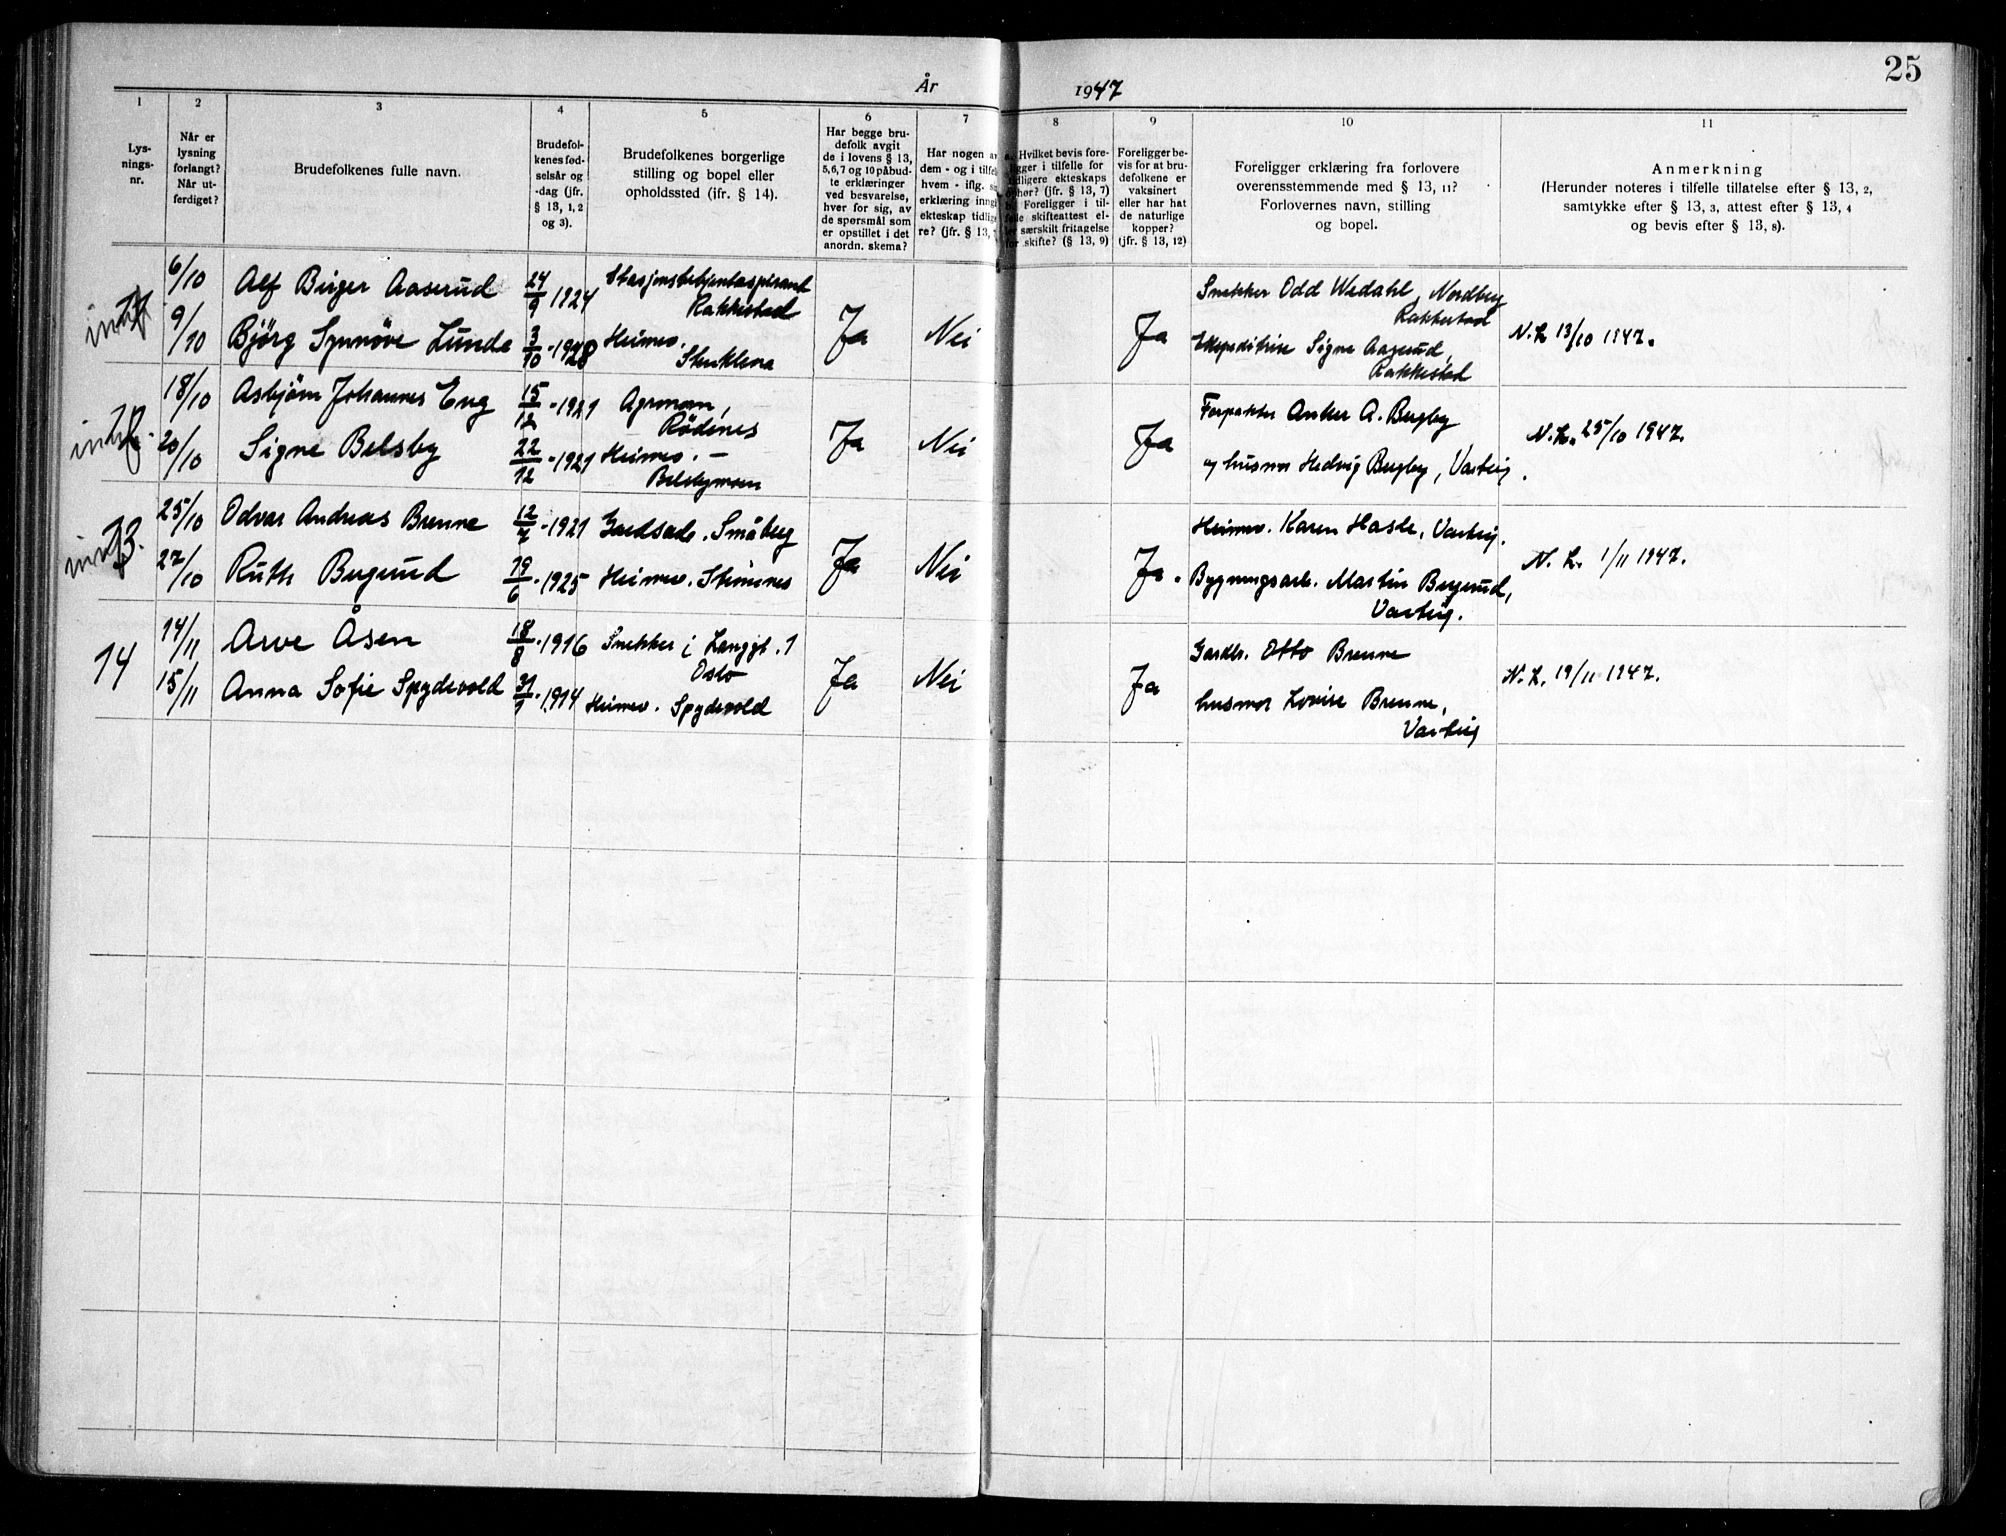 25
År 1947
1 2 3 4 5 6 7 8 9 10 11
Lys-
nings-
nr.
Når er
lysning
forlangt?
Når ut-
ferdiget?
Brudefolkenes fulle navn.
Brudefol-
kenes fød-
selsår og
-dag (jfr.
§ 13, 1, 2
og 3).
Brudefolkenes borgerlige
stilling og bopel eller
opholdssted (ifr. § 14).
Har begge bru-
defolk avgit
de i lovens § 13,
5,6,7 og 10 påbud-
te erklæringer
ved besvarelse,
hver for sig, av
de spørsmål som
er opstillet i det
anordn. skema?
Har nogen a
dem - og i tilfel
hvem - iflg. s
erklæring inng
ekteskap tidlig
re? (jfr. § 13,
a. Hvilket bevis fore-
ligger i tilfelle for
tidligere ekteskaps
ophør? (jfr. § 13, 7)
b. Foreligger i til-
felle skifteattest el-
ler særskilt fritagelse
for skifte? (§ 13, 9)
Foreligger be-
vis for at bru-
defolkene er
vaksinert
eller har hat
de naturlige
kopper?
(jfr. § 13, 12)
Foreligger erklæring fra forlovere
overensstemmende med § 13, 11?
Forlovernes navn, stilling
og bopel.
Anmerkning
(Herunder noteres i tilfelle tillatelse efter § 13, 2,
samtykke efter § 13, 3, attest efter § 13, 4
og bevis efter § 13, 8).
6/10 Alf Birger Aaserud 24/9 1924 Stasjonsbetjentaspirant
Rakkestad
Snekker Odd Wedahl, Nordbey
Rakkestad
9/10 Bjørg Synnøve Lunde 3/10-1928 Heimev.
Ja Nei Ja
Ekspeditrise Signe Aaserud,
Rakkestad
N.L 13/10 1947.
18/10 Asbjørn Johannes Eng 15/12-1921 Agronom,
Rødenes
Forpakter Anker A. Bugby
20/10 Signe Belsby 22/12-1921 Heimev. -
Belsbymoen
Ja Nei Ja
og husmor Hedvig Bugby, Varteig.
N.L. 25/10 1947.
13.
25/10 Odvar Andreas Brenne 12/7-1921 Gardsarb. Småberg
Heimev. Karen Hasle, Varteig.
27/10 Ruth Bergerud 19/6-1925 Heimev. Stömnes
Ja Nei Ja.
Bygningsarb. Martin Bergerud,
Varteig.
N.L. 1/11 1947.
14
14/11 Arve Åsen 18/8-1916 Snekker i Langgt. 1
Oslo
Gardbr. Otto Brenne
15/11 Anna Sofie Spydevold 31/1-1914 Heimev. Spydevold
Ja Nei Ja
husmor Lovise Brenne,
Varteig
N.L. 19/11 1947.